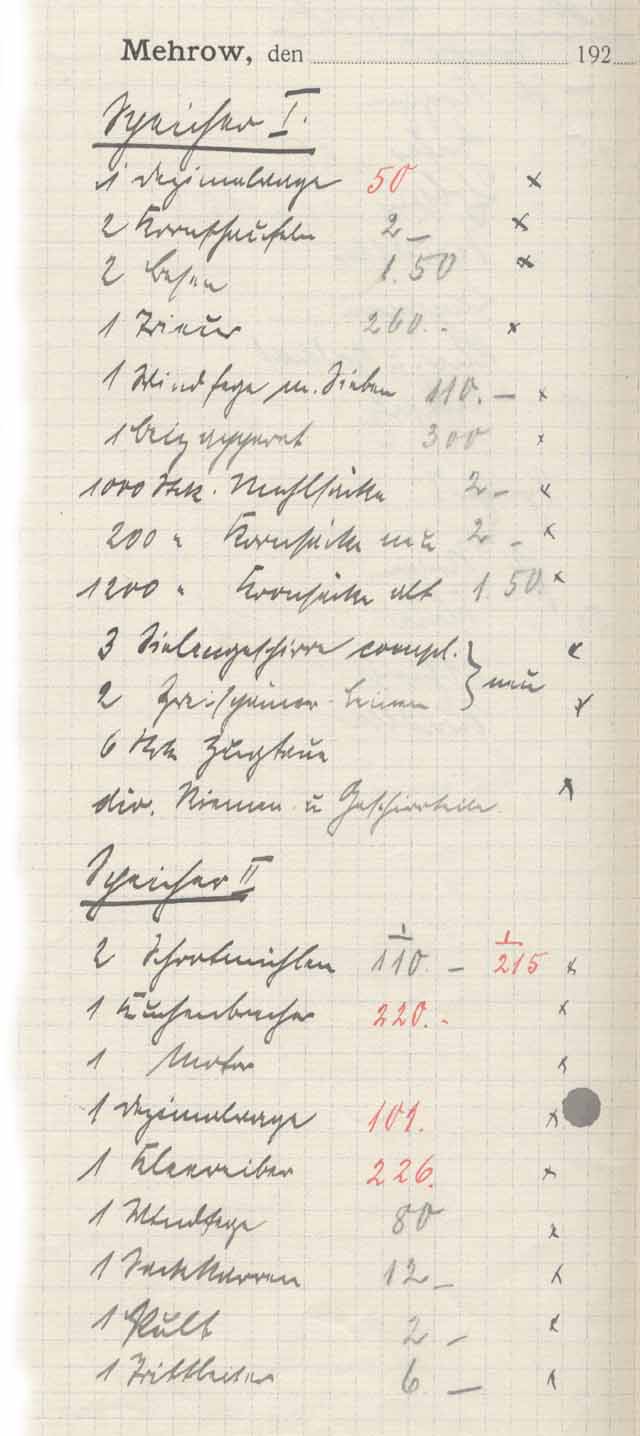 Mehrow, den 192
Speicher I.
1 Dezimalwage 50 x
2 Kornschaufeln 2 – x
2 Besen 1.50 x
1 Trieur 260.- x
1 Windfege m. Sieben 110. – x
1 Beizapparat 300 x
1000 Stck. Mehlsäcke 2 – x
200 " Kornsäcke neu 2 – x
1200 " Kornsäcke alt 1.50 x
3 Sielengeschirre compl. } neu x
2 Zweispänner Leinen x
6 Stck Zugtaue
div. Riemen u Geschirrteile x
Speicher II
2 Schrotmühlen 1 110. – 1 215 x
1 Kuchenbrecher 220.- x
1 Motor x
1 Dezimalwage 101. x
1 Kleereiber 226. x
1 Windfege 80 x
1 Sackkarren 12 – x
1 Pult 2 – x
1 Trittleiter 6 – x